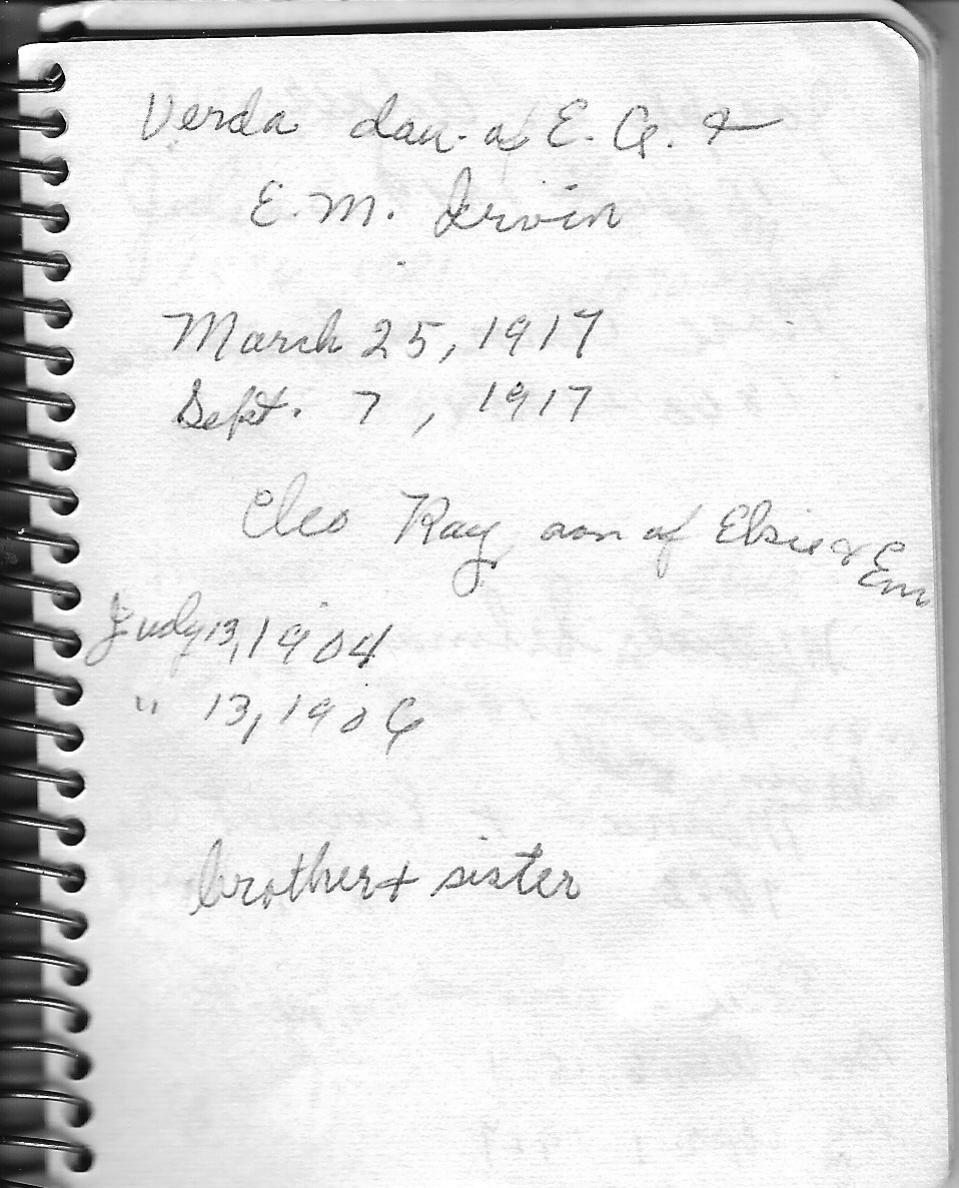 Verda dau. of E. G. &
E. M. Irvin
March 25, 1917
Sept. 7, 1917
Cleo Ray son of Elsie & Em
July 13, 1904
" 13, 1906
brother + sister